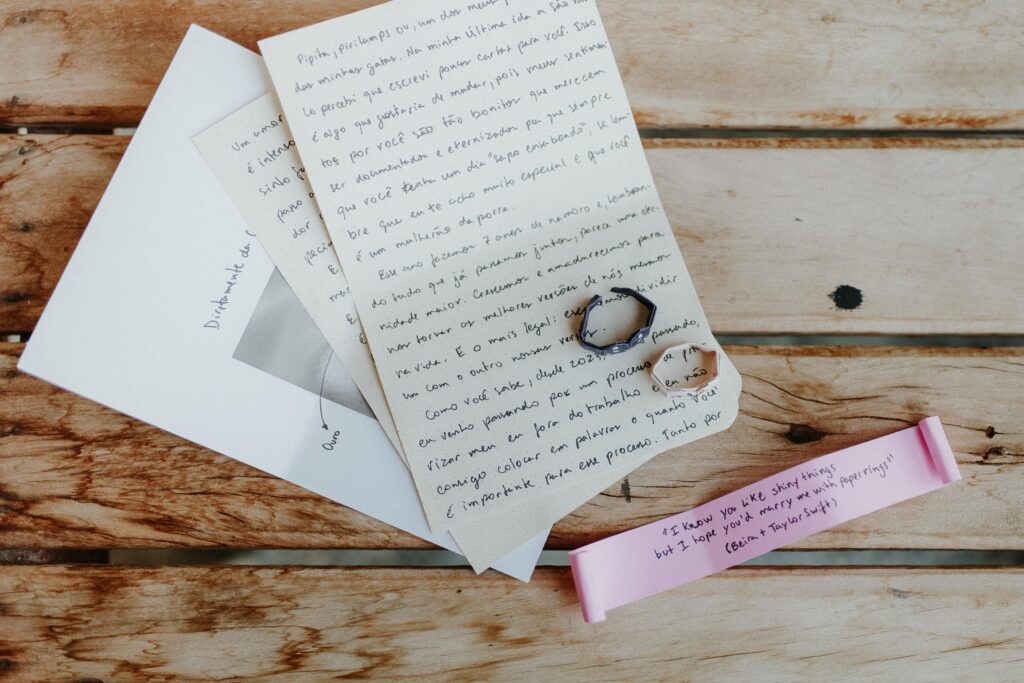 Pipita, piri.lamps ou, um dos meus
das minhas gatas. Na minha última ida a São
lo percebi que escrevi poucas cartas para você. Isso
é algo que gostaria de mudar, pois meus sentimen
tos por você são tão bonitos que merecem
ser documentados e eternizados pra que sempre
que você tenha um dia "sapo ensaboado", se lem
bre que eu te acho muito especial e que você
é um mulherão da porra.
Esse ano fazemos 7 anos de namoro e, lembran
do tudo que já passamos juntos, parece uma eter
nidade maior. Crescemos e amadurecemos para
nos tornar as melhores versões de nós mesmos
na vida. E o mais legal: dividir
um com o outro nossas
Como você sabe, desde 2023, passado,
eu venho passando por um processo de
vizar meu eu fora do trabalho e eu não
consigo colocar em palavras o quanto você
é importante para esse processo. Tanto por
Um amor
é intenso
sinto
passo
dor
Diretamente da
Ouro
"I know you like shiny things
but I hope you'd marry me with paper rings"
(Beira + Taylor Swift)